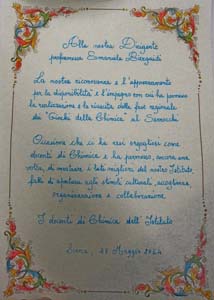 Alla nostra Dirigente
professoressa Emanuela
La nostra riconoscenza e l'apprezzamento
per la disponibilità e l'impegno con cui ha permesso
la realizzazione e la riuscita delle fasi regionali
dei "Giochi della Chimica" al Sarrocchi
Occasione che ci ha resi orgogliosi come
docenti di Chimica e ha permesso, ancora una
volta, di mostrare i lati migliori del nostro Istituto,
fatti di apertura agli stimoli culturali, accoglienza,
organizzazione e collaborazione.
I docenti di Chimica dell'Istituto
Siena, Maggio 2024